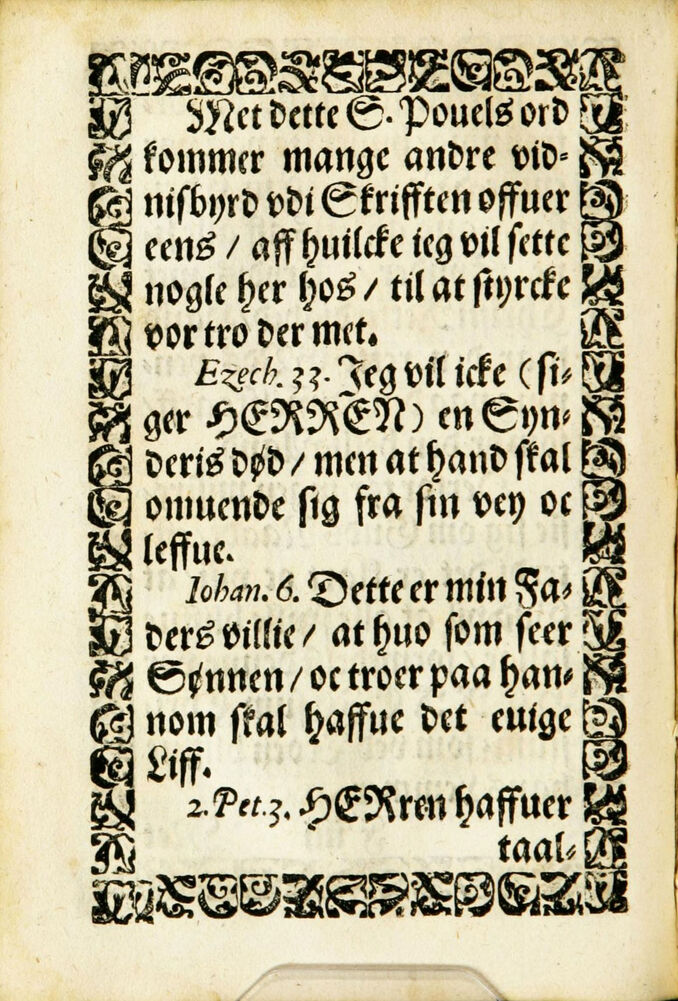 Met dette S. Pouels ord
kommer mange andre vid-
nisbyrd vdi Skrifften offuer
eens / aff huilcke ieg vil sette
nogle her hos / til at styrcke
vor tro der met.
Ezech. 33. Jeg vil icke (si-
ger HERREN) en Syn-
deris død / men at hand skal
omuende sig fra sin vey oc
leffue.
Iohan. 6. Dette er min Fa-
ders villie / at huo som seer
Sønnen / oc troer paa han-
nom skal haffue det euige
Liff.
2. Pet. 3. HERren haffuer
taal-